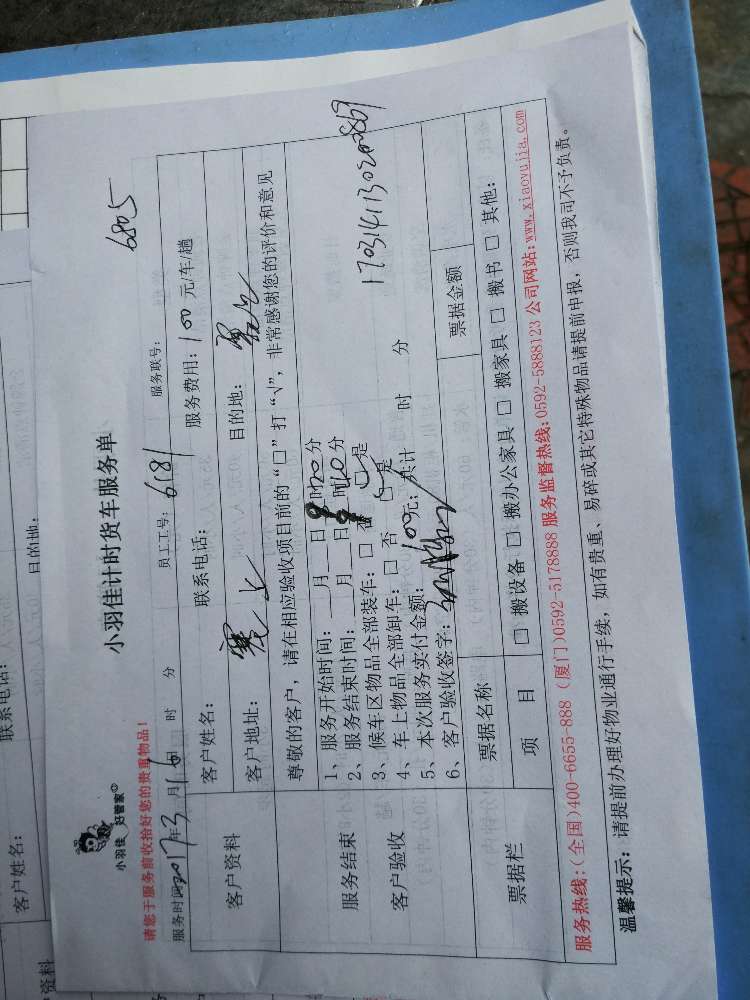 小羽佳计时货车服务单
小羽佳 好管家
请您于服务前收拾好您的贵重物品！
服务时间 2017年3月16日 时 分 员工工号：6181 服务联号： 6805
客户资料
客户姓名： 联系电话： 服务费用：100元/车/趟
客户地址： 目的地：
尊敬的客户，请在相应验收项目前的“□”打“√”，非常感谢您的评价和意见
服务结束
客户验收
1、服务开始时间： 月 日 时20分
2、服务结束时间： 月 日 时40分
3、候车区物品全部装车：□ 否 □ 是
4、车上物品全部卸车：□ 否 □ 是
5、本次服务实付金额：100元；共计 时 分
6、客户验收签字：
170314113020869
票据栏
票据名称 票据金额
项 目 □ 搬设备 □ 搬办公家具 □ 搬家具 □ 搬书 □ 其他：
服务热线：(全国)400-6655-888 (厦门)0592-5178888 服务监督热线：0592-5888123 公司网站：www.xiaoyujia.com
温馨提示：请提前办理好物业通行手续，如有贵重、易碎或其它特殊物品请提前申报，否则我司不予负责。
客户姓名： 联系电话：
目的地：
资料